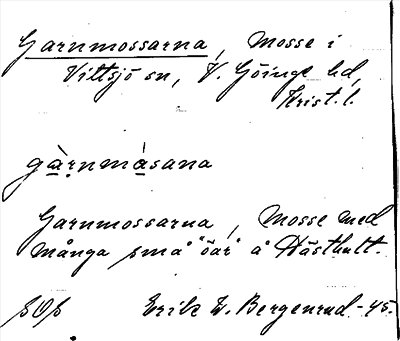 Garnmossarna, Mosse i
Vittsjö sn, V. Göinge hd,
Krist. l.
gà̱ṛnmá̱sana
Garnmossarna, Mosse med
många små "öar" å Hästhult.
SOS Erik W. Bergenrud -45.